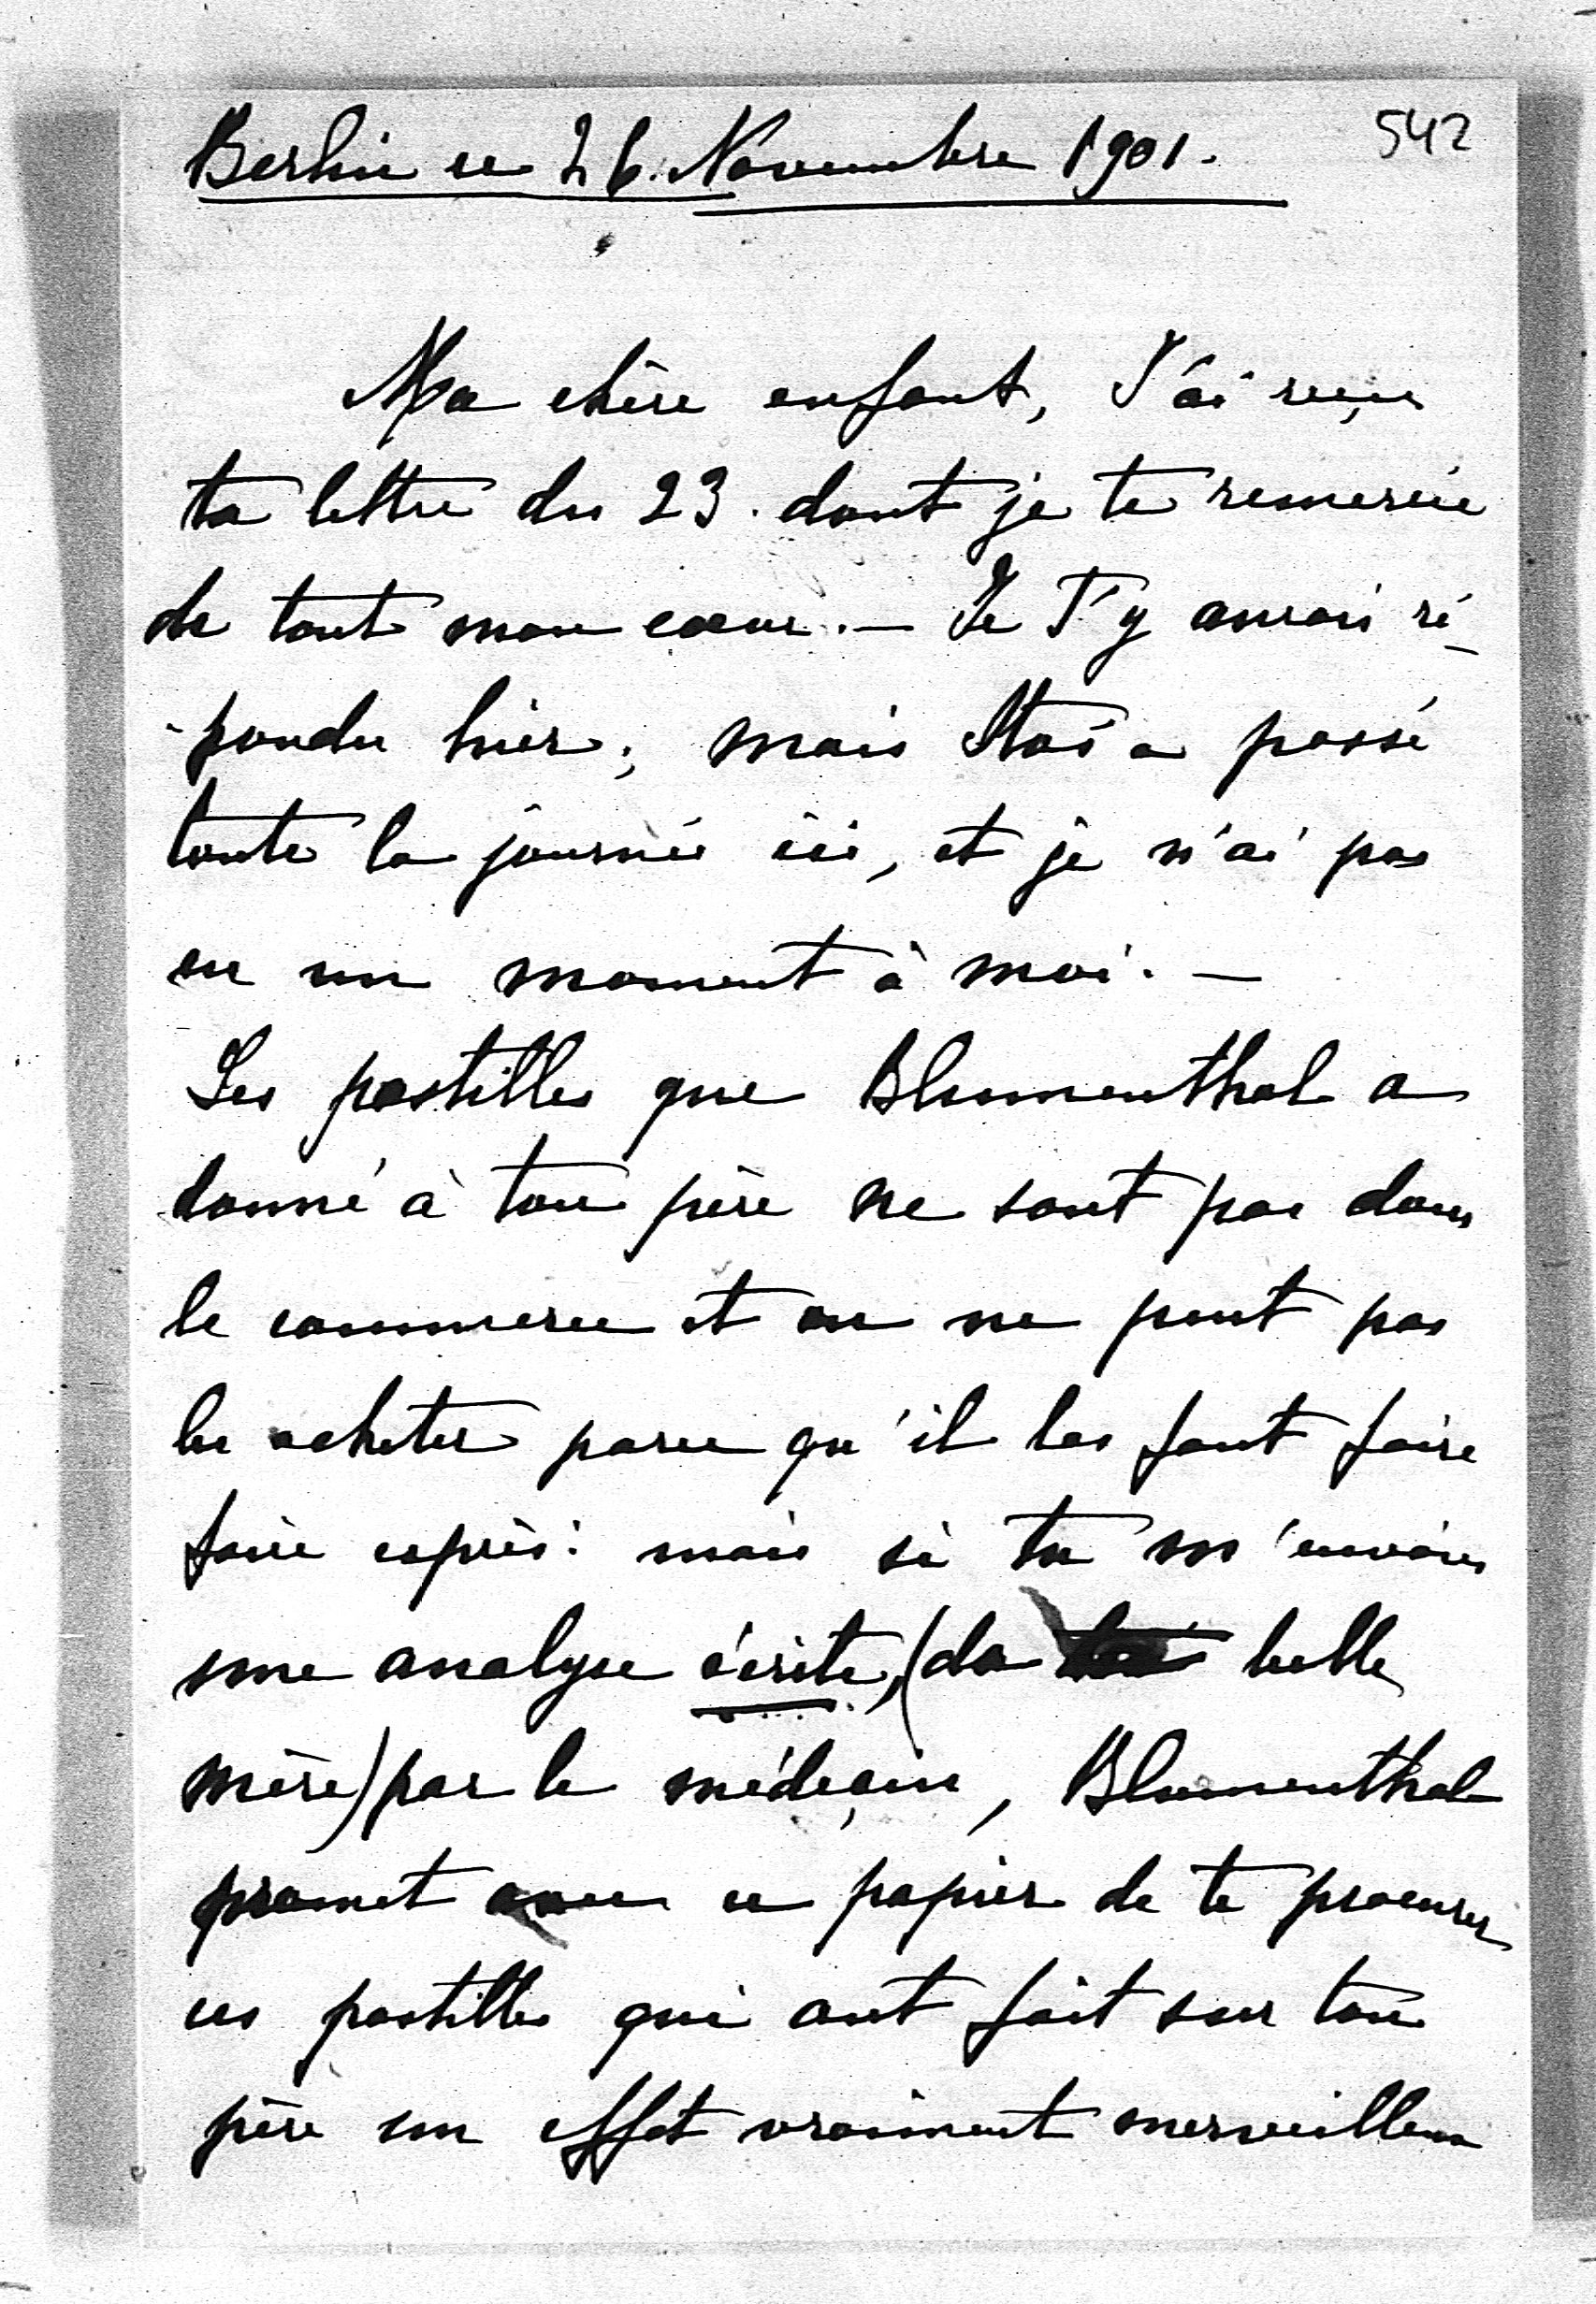 542
Berlin ce 26. Novembre 1901.
Ma chère enfant, J'ai reçu
ta lettre du 23. dont je te remercie
de tout mon cœur. — Je T'y aurais ré-
-pondu hier; mais Staś a passé
toute la journée ici, et je n'ai pas
eu un moment à moi. —
Les pastilles que Blumenthal a
donné à ton père ne sont pas dans
le commerce et on ne peut pas
les acheter parce qu'il les faut faire
faire exprès: mais si tu m'envoies
une analyse écrite, (de belle
mère) par le médeçin, Blumenthal
promet avec ce papier de te procurer
ces pastilles qui ont fait sur ton
père un effet vraiment merveilleux